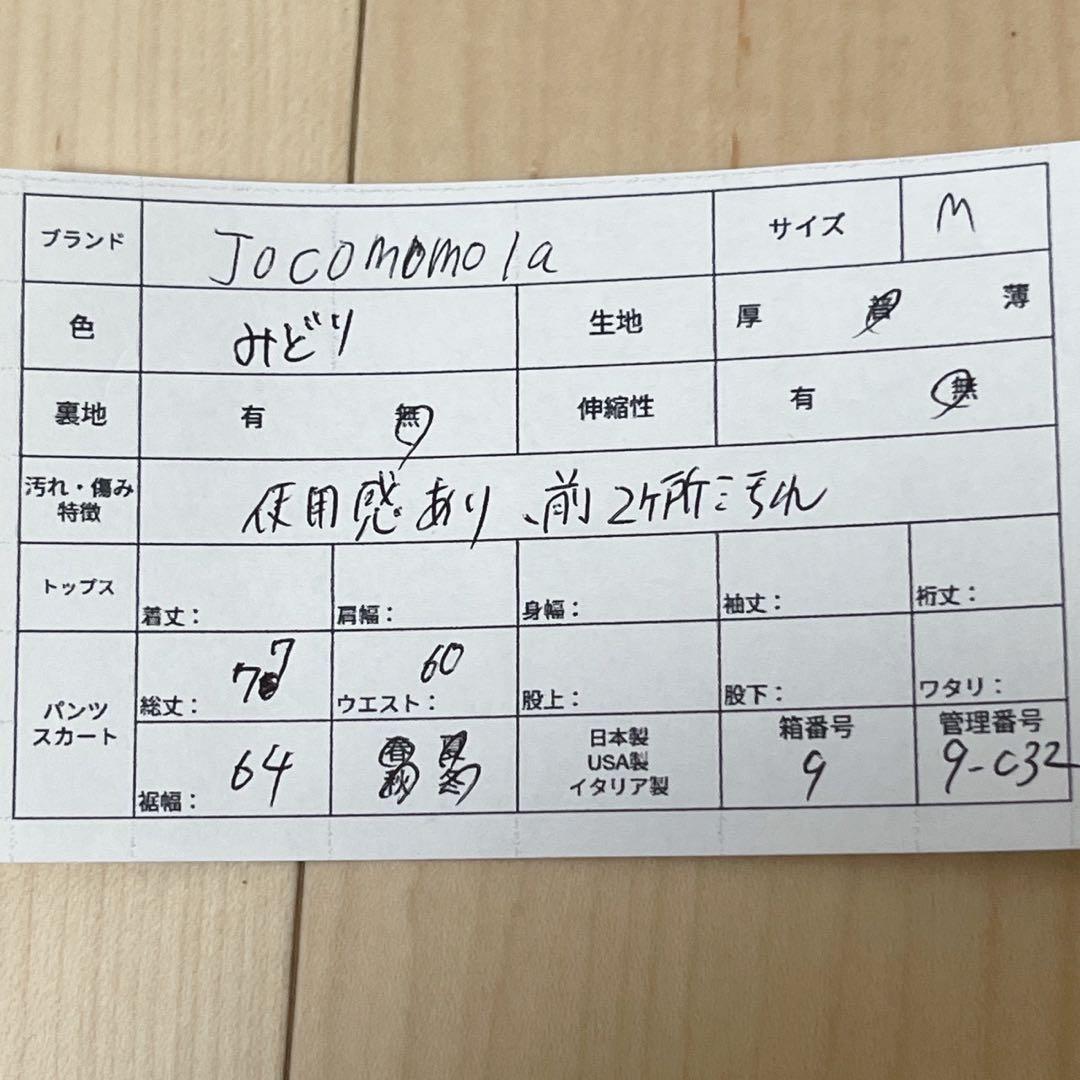 ブランド Jocomomola サイズ M
色 みどり 生地 厚 普 薄
裏地 有 無 伸縮性 有 無
汚れ・傷み
特徴
使用感あり、前2ヶ所汚れ
トップス 着丈: 肩幅: 身幅: 袖丈: 裄丈:
パンツ
スカート
総丈: 77 ウエスト: 60 股上: 股下: ワタリ:
裾幅: 64
春 夏
秋 冬
日本製
USA製
イタリア製
箱番号
9
管理番号
9-C32